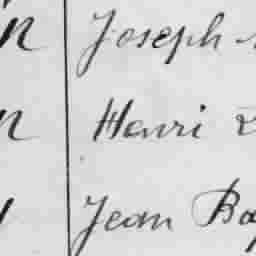 n Joseph
n Henri
Jean Bap